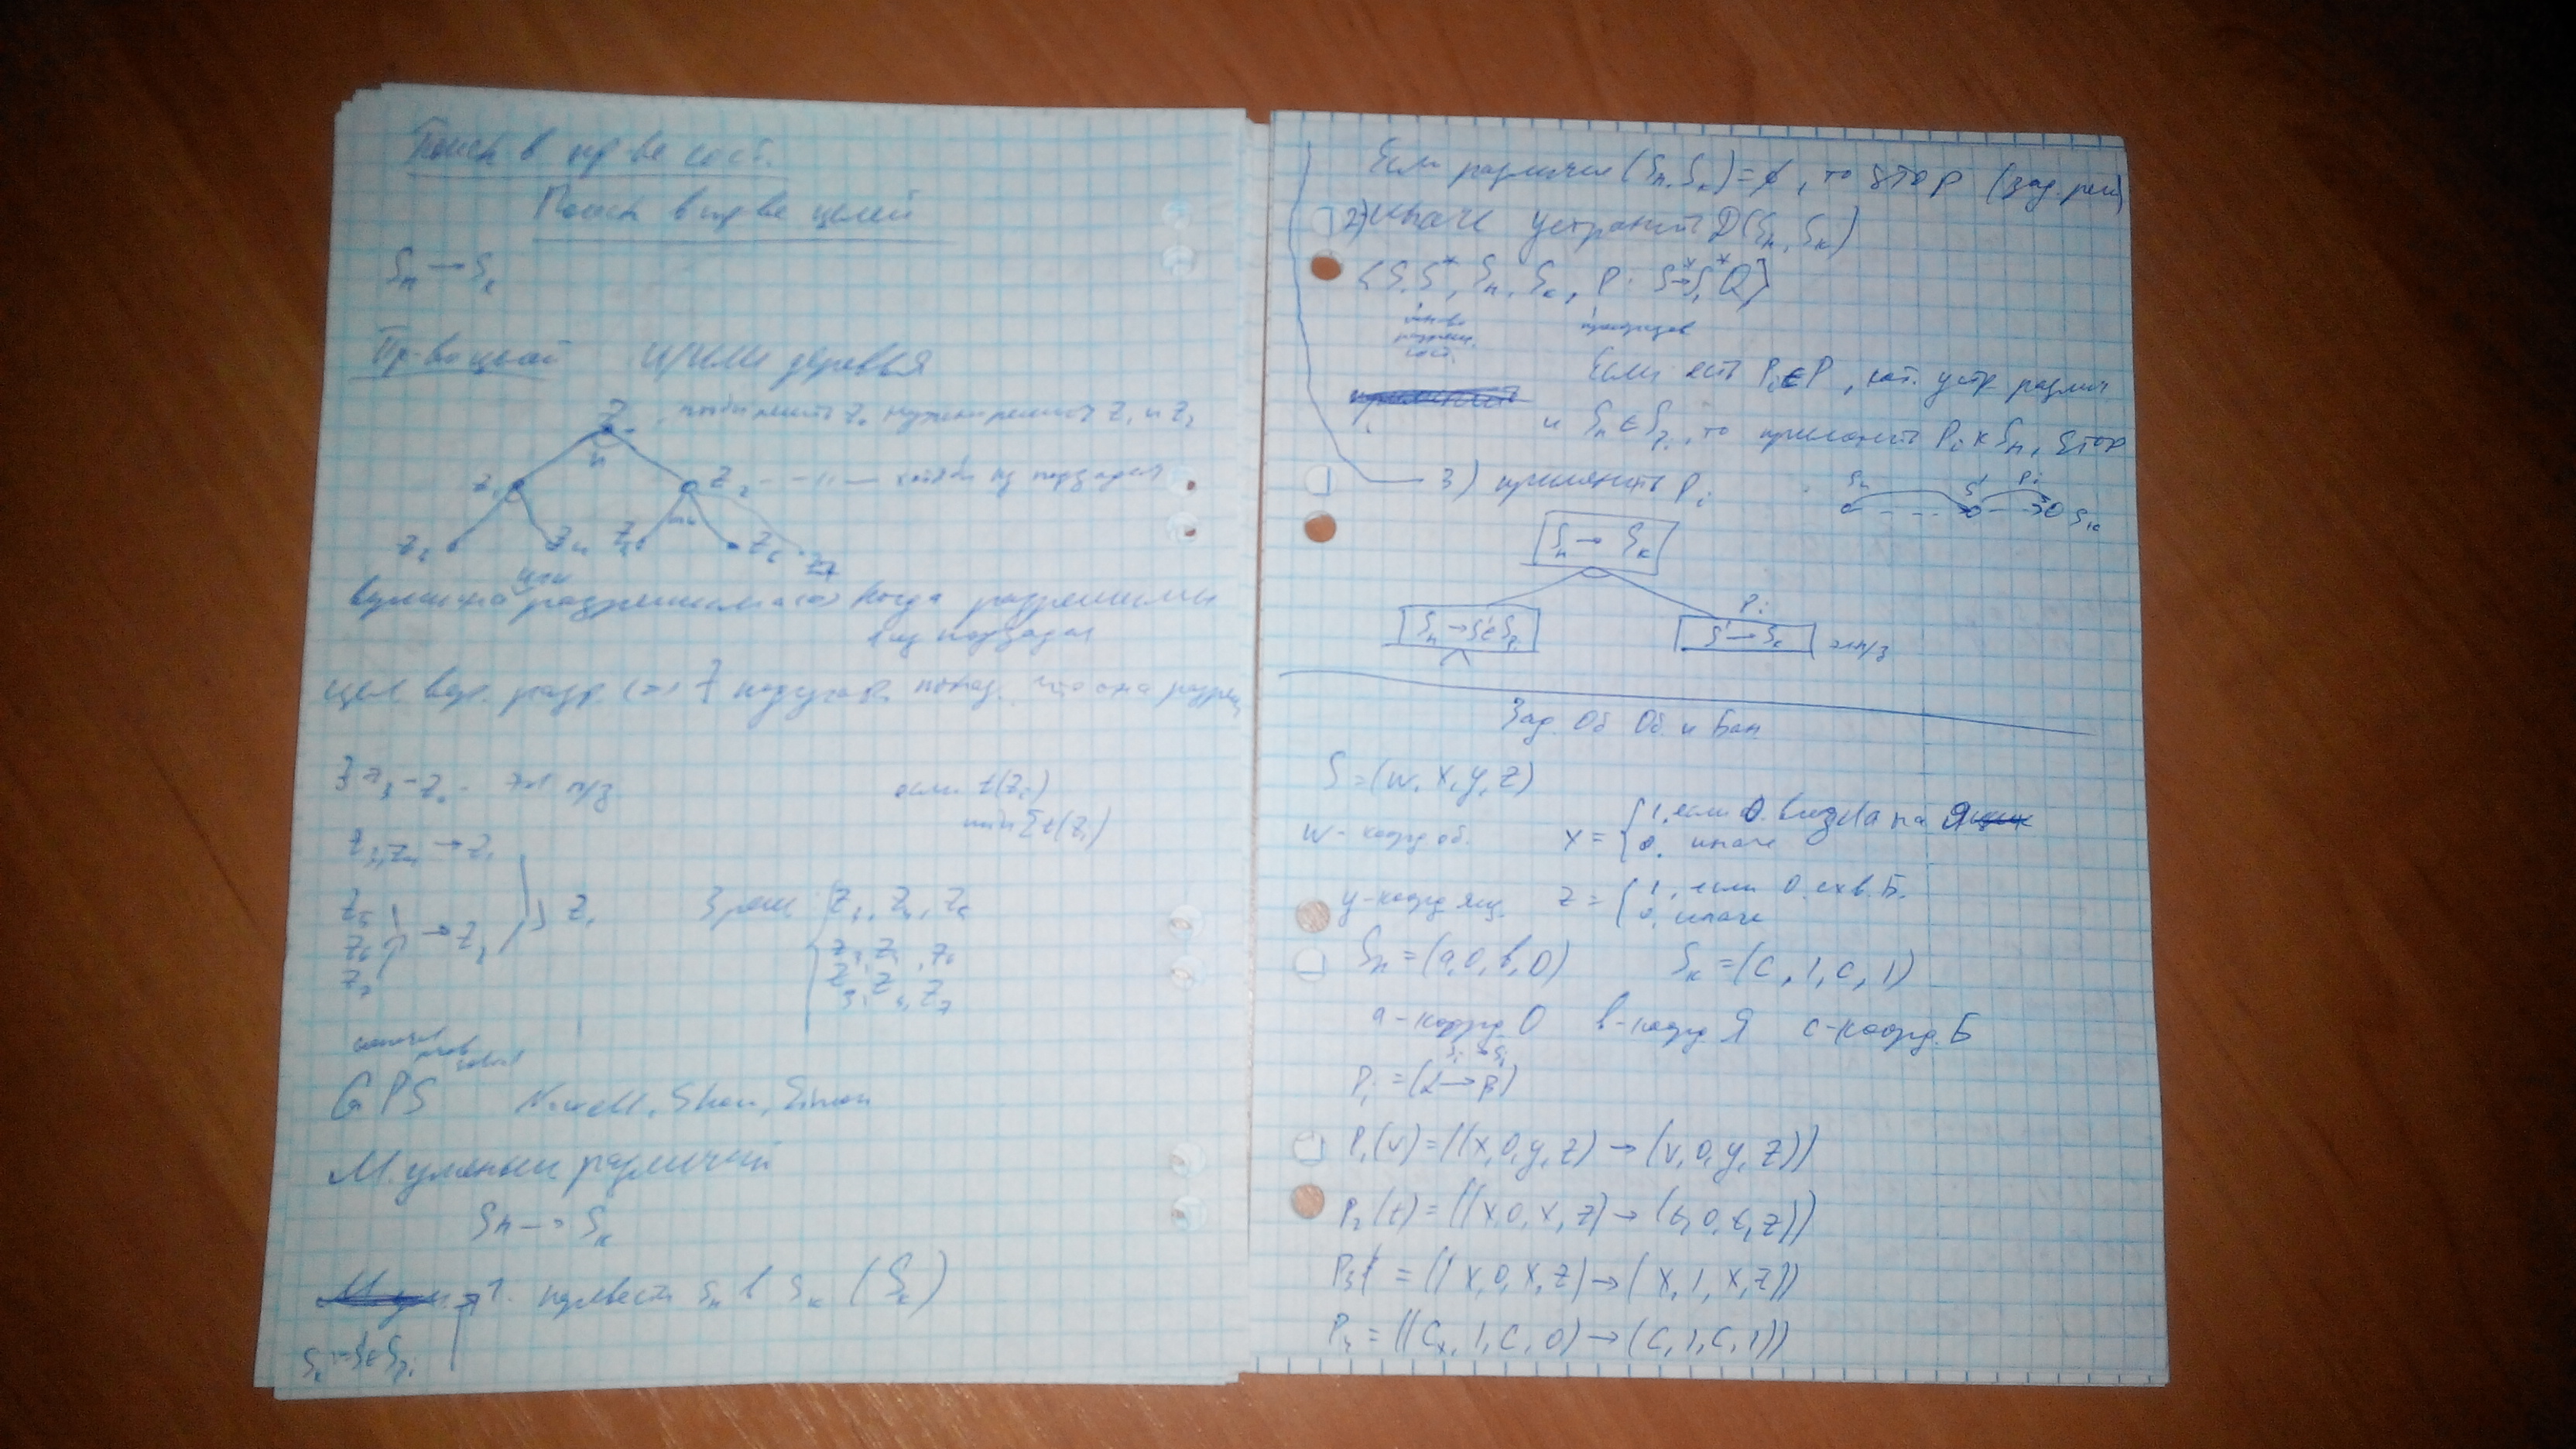 Поиск в пр-ве сост.
Поиск в пр-ве целей
Sп → Sк
Пр-во целей И/ИЛИ деревья
Z0 чтобы решить Z0 нужно решить Z1 и Z2
и
Z1 Z2 - - " — из подзадач
Z3 Z4 Z5 Z6 Z7
или
вершина разрешима <=> когда разрешимы
подзадач
вер. разр. <=> что она разреш
эл п/з если t(Zi)
min Σt(Zi)
Z3, Z4 → Z1
Z5
Z6 → Z2
Z7
3 реш Z3, Z4, Z5
Z3, Z4, Z6
Z3, Z4, Z7
GPS Newell, Shaw, Simon
М. уменьш различий
Sп → Sк
1. перевести Sп в Sк (Sк)
Если различия (Sп, Sк) = ∅, то STOP (зад. реш)
2) иначе устранить D(Sп, Sк)
{S, S*, Sп, Sк, P: S* → S*, Q}
мн-во
разреш.
сост.
Если есть Pi ∈ P, кот. устр различ
и Sп ∈ Spi, то применить Pi к Sп, STOP
3) применить Pi
Sп S' Pi Sк
Sп → Sк
Pi
Sп → S' ∈ Spi S' → Sк эл п/з
Зад. Об Об. и Бан
S = (w, x, y, z)
w - коорд. об. x = { 1, если О. влезла на Я
0, иначе
y - коорд ящ. z = { 1, если О. схв. Б.
0, иначе
Sп = (a, 0, b, 0) Sк = (c, 1, c, 1)
a - коорд О b - коорд Я c - коорд. Б
Pi = (α → β)
P1(v) = ((x, 0, y, z) → (v, 0, y, z))
P2(t) = ((x, 0, x, z) → (t, 0, t, z))
P3 = ((x, 0, x, z) → (x, 1, x, z))
P4 = ((c, 1, c, 0) → (c, 1, c, 1))